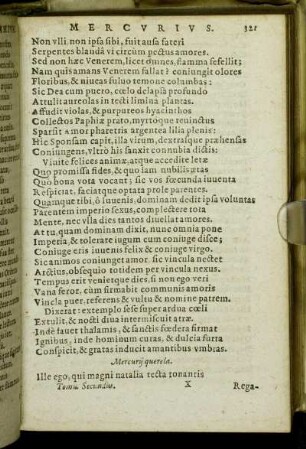 MERCVRIVS. 321
Non vlli non ipsa sibi, fuit ausa fateri
Serpentes blandâ vt circùm pectus amores.
Sed non hæc Venerem, licet omnes, flamma fefellit;
Nam quis amans Venerem fallat? coniungit olores
Floribus, & niueas fuluo temone columbas:
Sic Dea cum puero, cœlo delapsa profundo
Attulit aureolas in tecti limina plantas.
Affudit violas, & purpureos hyacinthos
Collectos Paphiæ prato, myrtóque reuinctus
Sparsit Amor pharetris argentea lilia plenis:
Hic Sponsam capit, illa virum, dextrasque præhensas
Coniungens, vltrò his sanxit connubia dictis:
Viuite felices animæ, atque accedite letæ
Quo promissa fides, & quo iam nubilis ætas
Quo bona vota vocant; sic vos fœcunda iuuenta
Respiciat, faciatque optata prole parentes.
Quamque tibi, ô iuuenis, dominam dedit ipsa voluntas
Parentem imperio sexus, complectere tota
Mente, nec vlla dies tantos diuellat amores.
At tu, quam dominam dixit, nunc omnia pone
Imperia, & tolerare iugum cum coniuge disce;
Coniuge eris iuuenis felix & coniuge virgo.
Sic animos coniunget amor, sic vincula nectet
Arctius, obsequio totidem per vincula nexus.
Tempus erit venietque dies, si non ego veri
Vana feror, cùm firmabit communis amoris
Vincla puer, referens & vultu & nomine patrem.
Dixerat: extemplo sese super ardua cœli
Extulit, & nocti diua intermiscuit atræ.
Inde fauet thalamis, & sanctis fœdera firmat
Ignibus, inde hominum curas, & dulcia furta
Conspicit, & gratas inducit amantibus vmbras.
Mercurij querela.
Ille ego, qui magni natalia tecta tonantis
Tomus Secundus. X Rega-